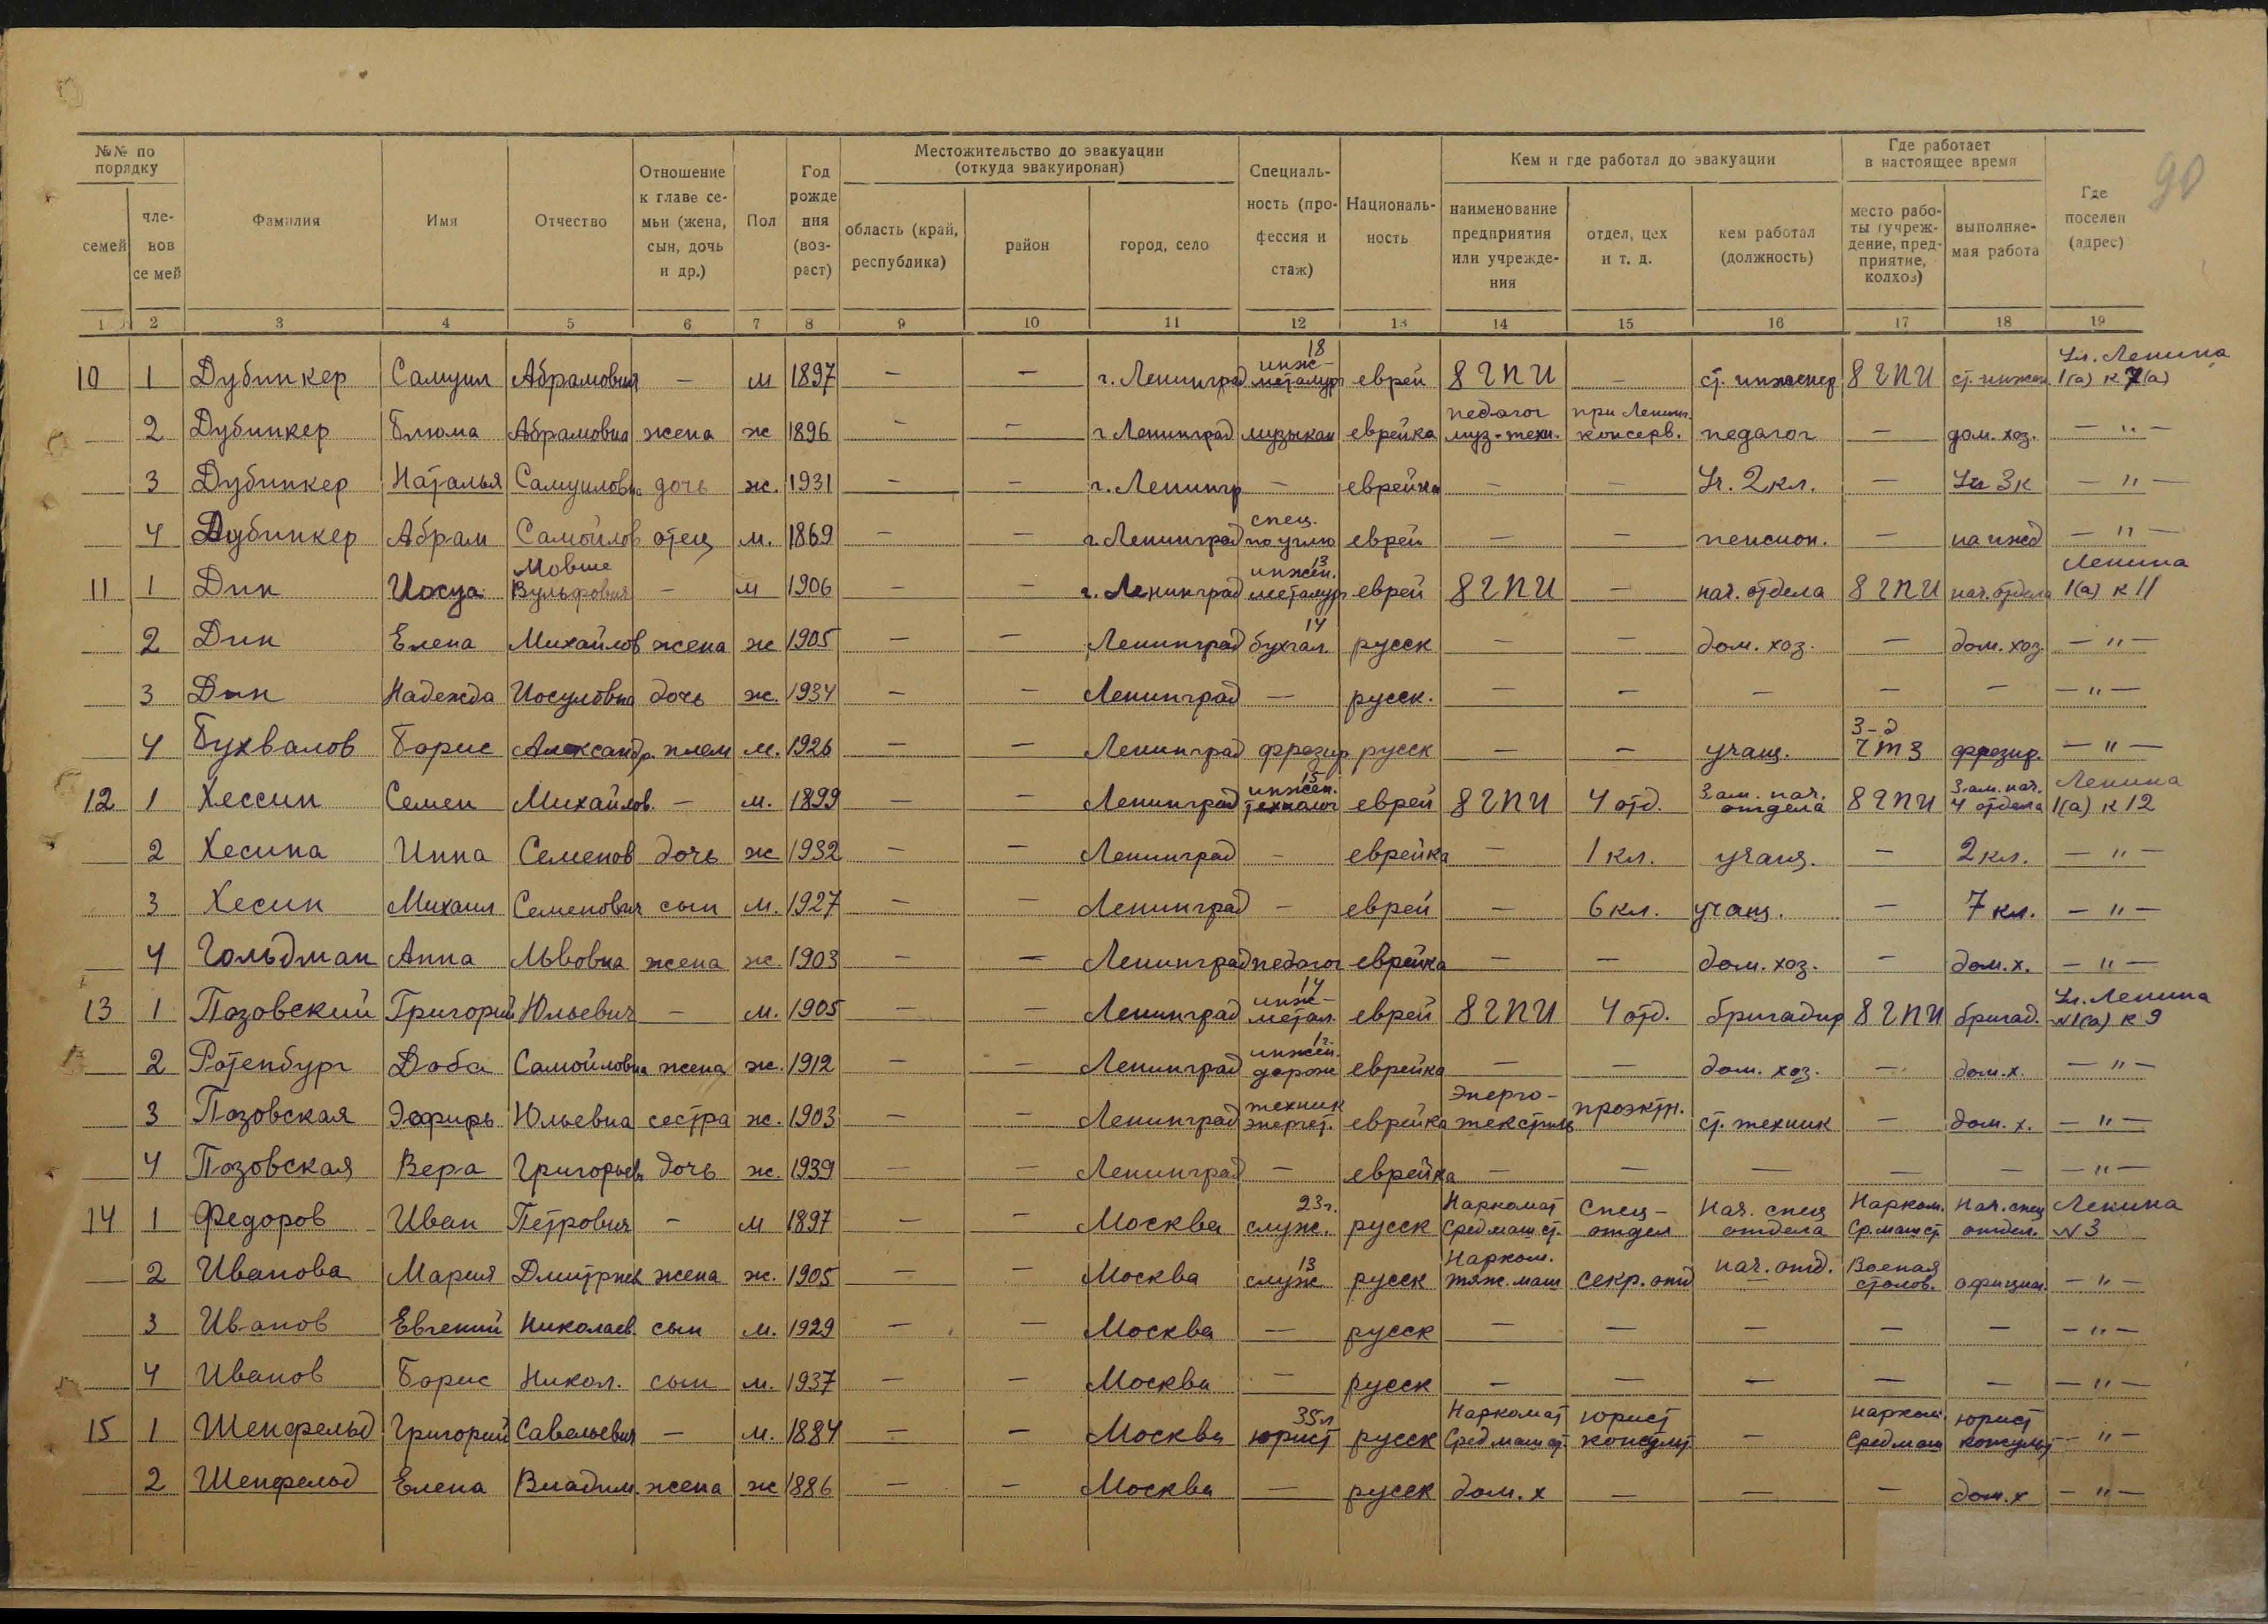 90
№№ по порядку | Фамилия | Имя | Отчество | Отношение к главе семьи (жена, сын, дочь и др.) | Пол | Год рождения (возраст) | Местожительство до эвакуации (откуда эвакуирован) | Специальность (профессия и стаж) | Национальность | Кем и где работал до эвакуации | Где работает в настоящее время | Где поселен (адрес)
семей | членов се мей | область (край, республика) | район | город, село | наименование предприятия или учреждения | отдел, цех и т. д. | кем работал (должность) | место работы (учреждение, предприятие, колхоз) | выполняемая работа
1 | 2 | 3 | 4 | 5 | 6 | 7 | 8 | 9 | 10 | 11 | 12 | 13 | 14 | 15 | 16 | 17 | 18 | 19
10 | 1 | Дубинкер | Самуил | Абрамович | — | м | 1897 | — | — | г. Ленинград | 18 инж-металург | еврей | 8 ГПИ | — | ст. инженер | 8 ГПИ | ст. инжен. | Ул. Ленина 1(а) к 7(а)
— | 2 | Дубинкер | Блюма | Абрамовна | жена | ж | 1896 | — | — | г Ленинград | музыкан | еврейка | педагог муз-техн. | при Ленинг. консерв. | педагог | — | дом. хоз. | — " —
— | 3 | Дубинкер | Наталья | Самуиловн. | дочь | ж. | 1931 | — | — | г. Ленингр | — | еврейка | — | — | Уч. 2 кл. | — | Уч 3к | — " —
— | 4 | Дубинкер | Абрам | Самойлов | отец | м. | 1869 | — | — | г. Ленинград | спец. по углю | еврей | — | — | пенсион. | — | на ижд | — " —
11 | 1 | Дин | Иосуа | Мовше Вульфович | — | м | 1906 | — | — | г. Ленинград | 13 инжен. металург | еврей | 8 ГПИ | — | нач. отдела | 8 ГПИ | нач. отдела | Ленина 1(а) к 11
— | 2 | Дин | Елена | Михайлов | жена | ж | 1905 | — | — | Ленинград | 14 бухгал. | русск | — | — | дом. хоз. | — | дом. хоз. | — " —
— | 3 | Дин | Надежда | Иосуловна | дочь | ж. | 1934 | — | — | Ленинград | — | русск. | — | — | — | — | — | — " —
— | 4 | Бухвалов | Борис | Александр. | плем | м. | 1926 | — | — | Ленинград | фрезир | русск | — | — | учащ. | З-д ЧТЗ | фрезир. | — " —
12 | 1 | Хессин | Семен | Михайлов. | — | м. | 1899 | — | — | Ленинград | 15 инжен. технолог | еврей | 8 ГПИ | 4 отд. | Зам. нач. отдела | 8 ГПИ | Зам. нач. 4 отдела | Ленина 1(а) к 12
— | 2 | Хесина | Инна | Семенов | дочь | ж | 1932 | — | — | Ленинград | — | еврейка | — | 1 кл. | учащ. | — | 2 кл. | — " —
3 | Хесин | Михаил | Семенович | сын | м. | 1927 | — | — | Ленинград | — | еврей | — | 6 кл. | учащ. | — | 7 кл. | — " —
— | 4 | Гольдман | Анна | Львовна | жена | ж. | 1903 | — | — | Ленинград | педагог | еврейка | — | — | дом. хоз. | — | дом. х. | — " —
13 | 1 | Позовский | Григорий | Юльевич | — | м. | 1905 | — | — | Ленинград | 14 инж-метал. | еврей | 8 ГПИ | 4 отд. | бригадир | 8 ГПИ | бригад. | Ул. Ленина №1(а) к 9
— | 2 | Ротенбург | Доба | Самойловна | жена | ж. | 1912 | — | — | Ленинград | инжен. дорож | еврейка | — | — | дом. хоз. | — | дом. х. | — " —
3 | Позовская | Эсфирь | Юльевна | сестра | ж. | 1903 | — | — | Ленинград | техник энергет. | еврейка | Энерго-текстиль | проэктн. | ст. техник | — | дом. х. | — " —
— | 4 | Позовская | Вера | Григорьев | дочь | ж | 1939 | — | — | Ленинград | — | еврейка | — | — | — | — | — | — " —
14 | 1 | Федоров | Иван | Петрович | — | м | 1897 | — | — | Москва | 23г. служ. | русск | Наркомат Средмаш ст. | Спец-отдел | Нач. спец отдела | Нарком. Ср.маш ст | Нач. спец отдел. | Ленина №3
— | 2 | Иванова | Мария | Дмитриев | жена | ж. | 1905 | — | — | Москва | 13 служ | русск | Нарком. тяж. маш | секр. отд | нач. отд. — | Военая столов. | официан. | — " —
3 | Иванов | Евгений | Николаев. | сын | м. | 1929 | — | — | Москва | — | русск | — | — | — | — | — | — " —
— | 4 | Иванов | Борис | Никол. | сын | м. | 1937 | — | — | Москва | — | русск | — | — | — | — | — | — " —
15 | 1 | Шенфельд | Григорий | Савельевич | — | м. | 1884 | — | — | Москва | 35л юрист | русск | Наркомат Сред маш ст | юрист консульт | — | нарком. Средмаш | юрист консульт | — " —
— | 2 | Шенфельд | Елена | Владим. | жена | ж | 1886 | — | — | Москва | — | русск | дом. х | — | — | — | дом. х | — " —